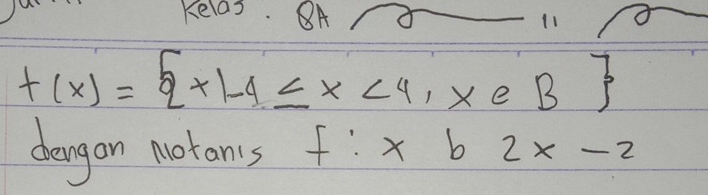 Kelas. 8A "
f(x) = {x|-4 ≤ x < 4, x e B }
dengan Notanis f : x b 2x - 2